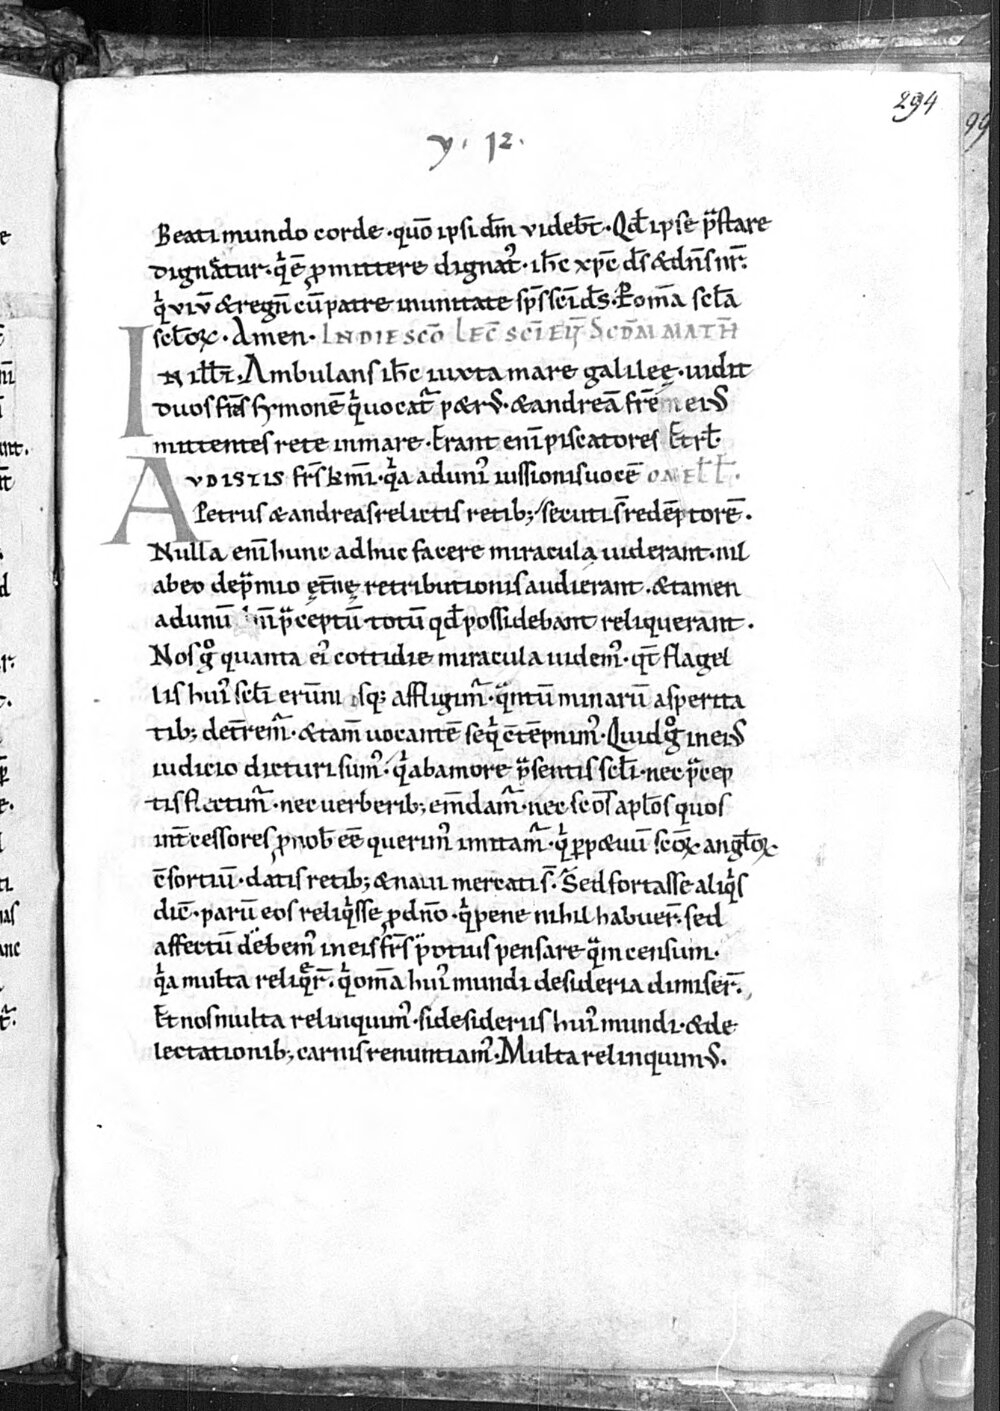 294
99
y. 12.
Beati mundo corde · quō ipsi dm̄ videbt̄ · Qd̄ ipse p̄stare
dignatur · q̄ ē ꝓmittere dignat᷒ · ih̄c xp̄c ds̄ & dn̄s nr̄.
q̄ viv̄ & regn̄ cū patre in unitate sp̄s sc̄i ds̄. P om̄a scl̄a
scl̄oꝝ. Amen. IN DIE SCO LEC̄ SC̄I EU̅ SCDM MATH̄
IN ill̄ t̄. Ambulans ih̄c iuxta mare galileę · uidit
duos fr̄s symonē q̄ uocat᷒ petr᷒ · & andreā frēm ei᷒
mittentes rete in mare · Erant enī piscatores Et rl̄.
AVDISTIS fr̄s km̄i · q̄a ad uni᷒ iussionis uocē OMEL̄L̄.
Petrus & andreas relictis retib; secuti s̄ redēptorē.
Nulla enī hunc adhuc facere miracula uiderant · nil
ab eo de p̄mio ęt̄nę retributionis audierant · & tamen
ad unū p̄ceptū · totū qd̄ possidebant reliquerant.
Nos g̊ quanta ei᷒ cottidie miracula uidem᷒ · qt̄ flagel
lis hui᷒ scl̄i affligim᷒ · q̄ntū minarū asperita
tib; det̄rem᷒ · & tam̄ uocantē seq̄ ꝯtēpnim᷒. Quid g̊ in ei᷒
iudicio dicturi sum᷒ · q̄ ab amore p̄sentis scl̄i · nec p̄cep
tis flectim᷒ · nec uerberib; em̄dam᷒ · nec sc̄os ap̄los quos
int̄cessores ꝓ nob̄ eē querim᷒ imitam᷒ · q̄ ꝑp&uū sc̄oꝝ angl̄oꝝ
ꝯsortiū · datis retib; & naui mercati s̄. Sed fortasse aliq̄s
diē · parū eos reliq̄sse ꝓ dn̄o · q̄ pene nihil habuer̄ · sed
affectū debem᷒ in eis fr̄s potius pensare q̄m censum.
q̄a multa reliq̄r̄ · q̄ om̄a hui᷒ mundi desideria dimiser̄.
Et nos multa relinquim᷒ · si desideriis hui᷒ mundi · & de
lectationib; carnis renuntiam᷒. Multa relinquim᷒.